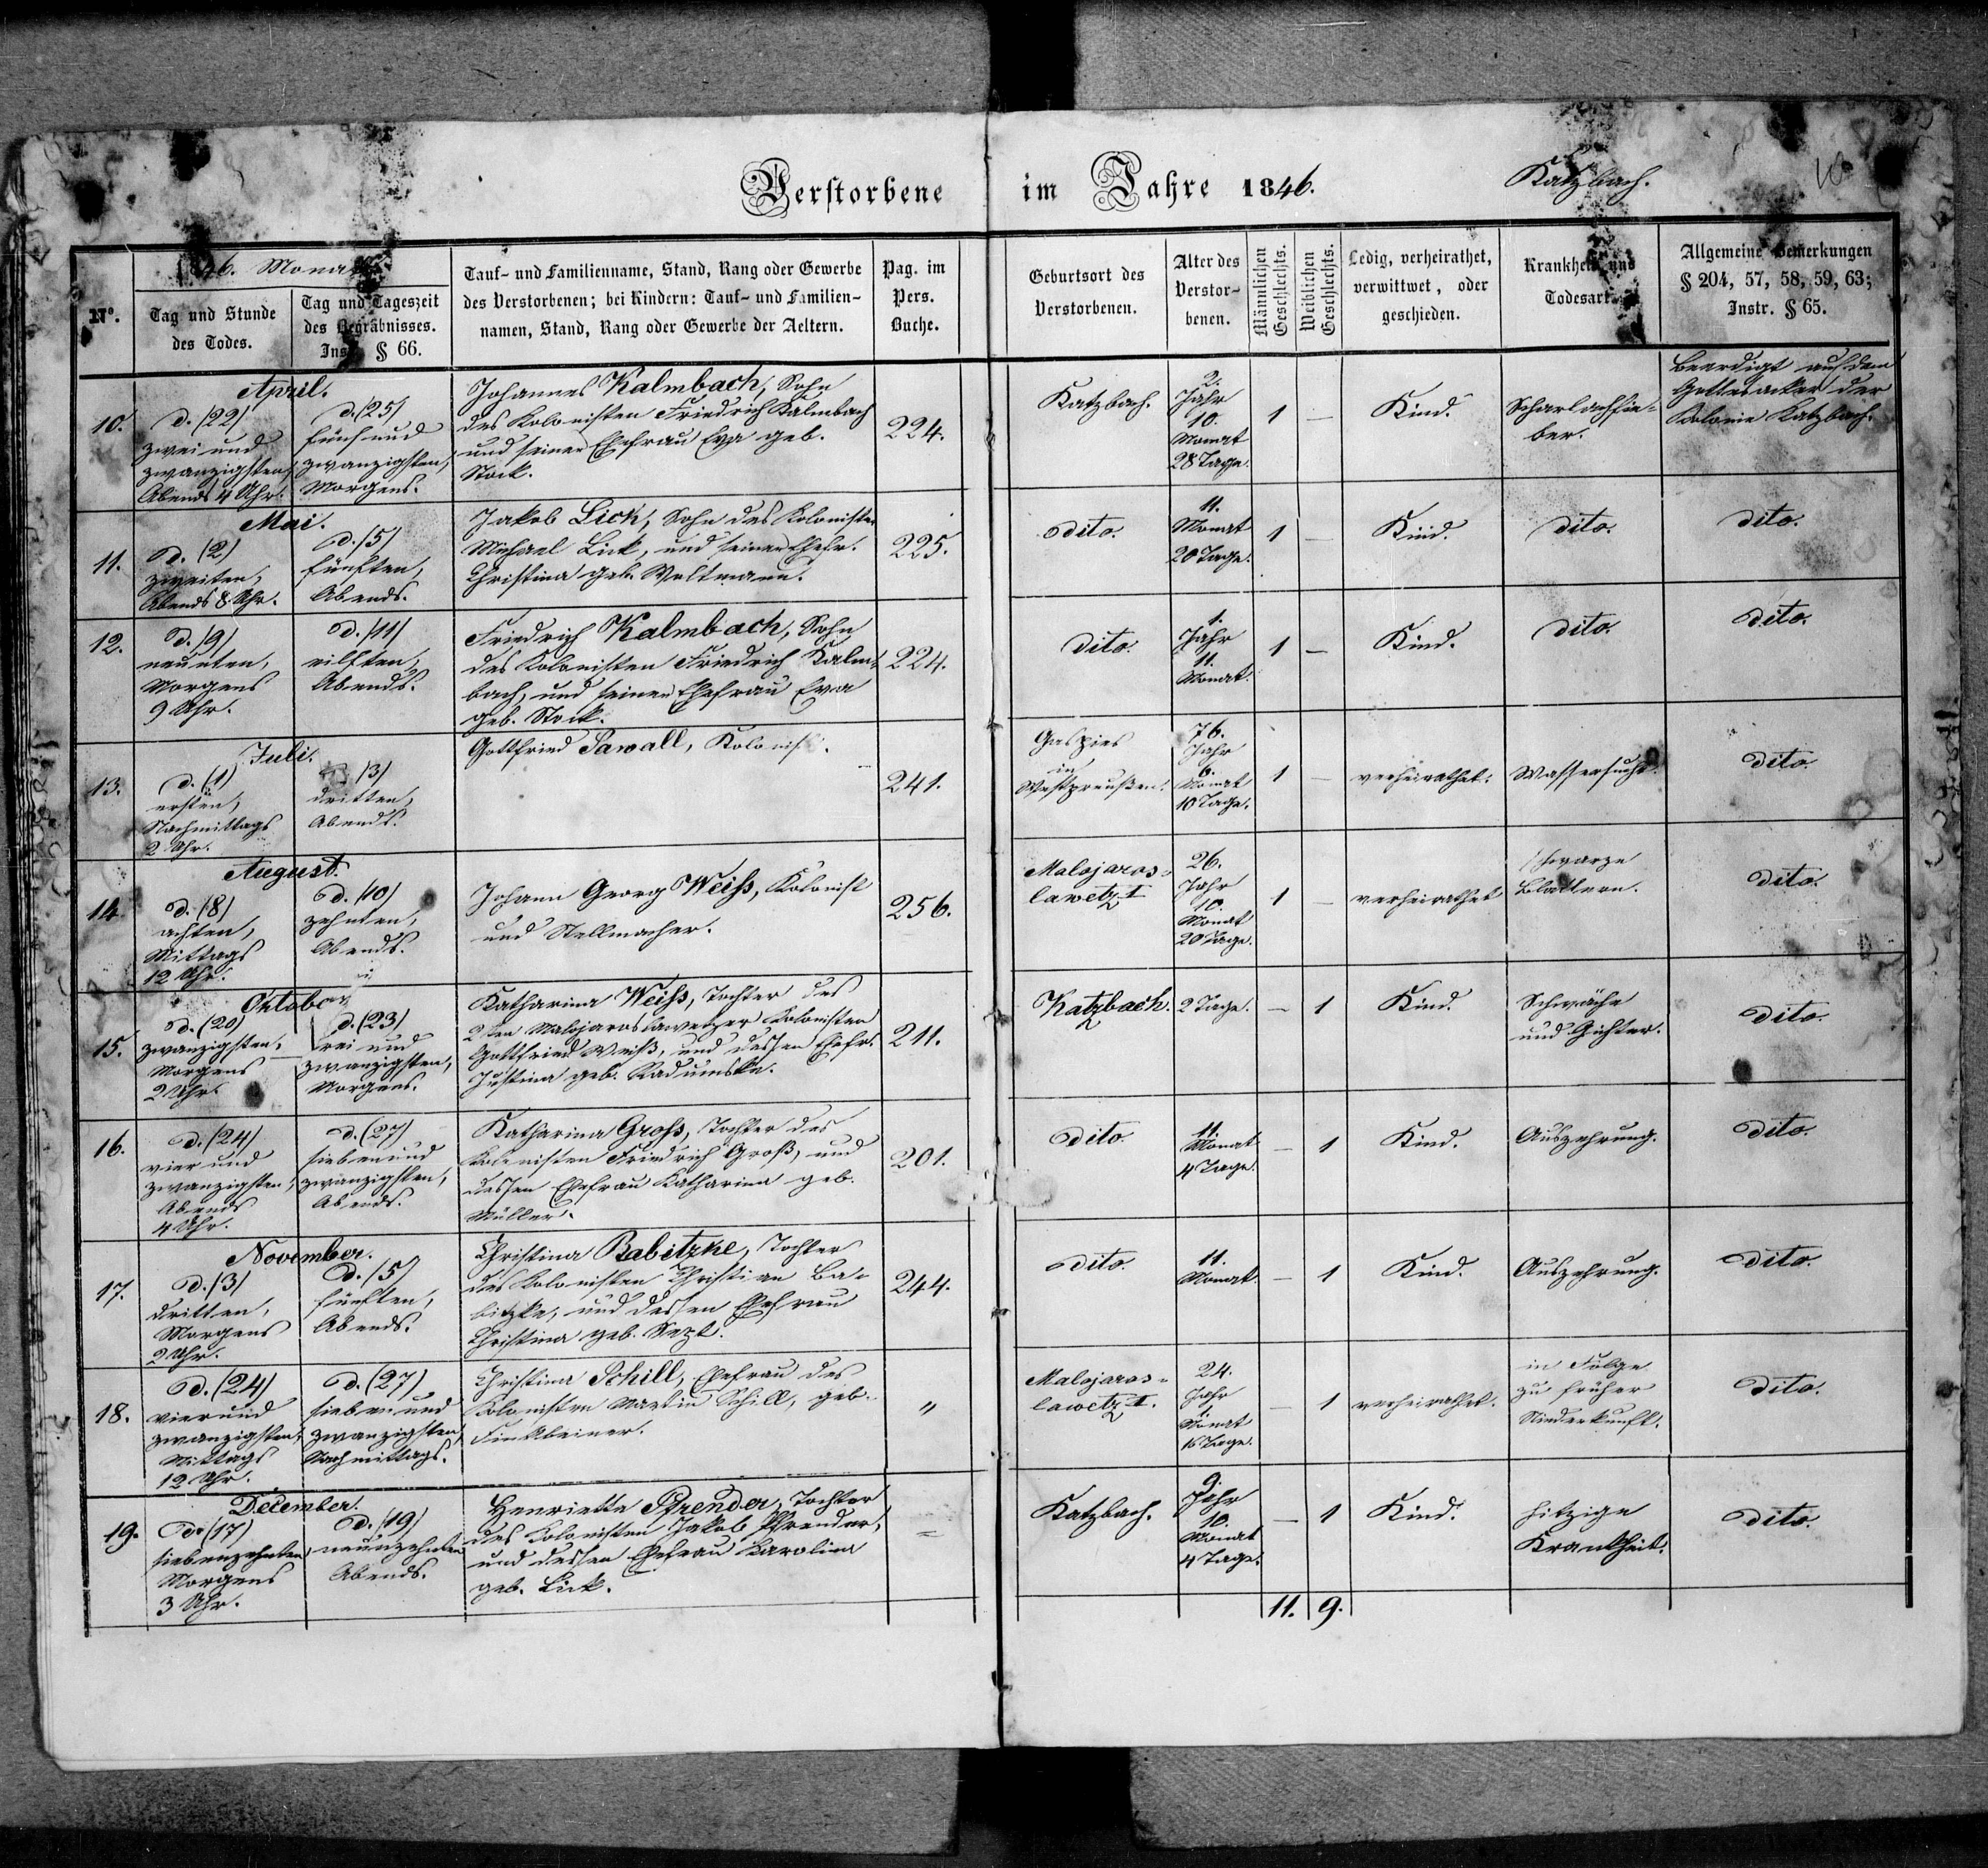 Verstorbene im Jahre 1846. Katzbach.
46. Monat
Nº.
Tag und Stunde
des Todes.
Tag und Tageszeit
des Begräbnisses.
Inst. § 66.
Tauf- und Familienname, Stand, Rang oder Gewerbe
des Verstorbenen; bei Kindern: Tauf- und Familien-
namen, Stand, Rang oder Gewerbe der Aeltern.
Pag. im
Pers.
Buche.
Geburtsort des
Verstorbenen.
Alter des
Verstor-
benen.
Männlichen
Geschlechts.
Weiblichen
Geschlechts.
Ledig, verheirathet,
verwittwet, oder
geschieden.
Krankheit und
Todesart.
Allgemeine Bemerkungen
§ 204, 57, 58, 59, 63;
Instr. § 65.
April.
10.
d. (22)
zwei und
zwanzigsten,
Abends 4 Uhr.
d. (25)
fünf und
zwanzigsten,
Morgens.
Johannes Kalmbach, Sohn
des Kolonisten Friedrich Kalmbach
und seiner Ehefrau Eva geb.
Stock.
224.
Katzbach.
2.
Jahr
10.
Monat
28 Tage.
1
—
Kind.
Scharlachfie-
ber.
Beerdigt auf dem
Gottesacker der
Kolonie Katzbach.
Mai.
11.
d. (2)
zweiten,
Abends 8 Uhr.
d. (5)
fünften,
Abends.
Jakob Lick, Sohn des Kolonisten
Michael Lick, und seiner Ehefr.
Christina geb. Weltmann.
225.
dito.
11.
Monat
20 Tage.
1
—
Kind.
dito.
dito.
12.
d. (9)
neunten,
Morgens
9 Uhr.
d. (11)
eilften,
Abends.
Friedrich Kalmbach, Sohn
des Kolonisten Friedrich Kalm-
bach, und seiner Ehefrau Eva
geb. Stock.
224.
dito.
1.
Jahr
11.
Monat.
1
—
Kind.
dito.
dito.
Juli.
13.
d. (1)
ersten,
Nachmittags
2 Uhr.
(3)
dritten,
Abends.
Gottfried Sawall, Kolonist.
241.
in
Westpreußen.
76.
Jahr
6.
Monat
10 Tage.
1
—
verheirathet.
Wassersucht.
dito.
August.
14.
d. (8)
achten,
Mittags
12 Uhr.
d. (10)
zehnten,
Abends.
Johann Georg Weiss, Kolonist
und Stellmacher.
256.
Malojaros-
lawetz I
26.
Jahr
10.
Monat
20 Tage.
1
—
verheirathet
schwarze
Blattern.
dito.
Oktober
15.
d. (20)
zwanzigsten,
Morgens
2 Uhr.
d. (23)
drei und
zwanzigsten,
Morgens.
Katharina Weiss, Tochter des
2ten Malojaroslawetzer Kolonisten
Gottfried Weiß, und dessen Ehefr.
Justina geb. Radumske.
211.
Katzbach.
2 Tage.
—
1
Kind.
Schwäche
und Gichter.
dito.
16.
d. (24)
vier und
zwanzigsten,
Abends
4 Uhr.
d. (27)
sieben und
zwanzigsten,
Abends.
Katharina Gross, Tochter des
Kolonisten Friedrich Groß, und
dessen Ehefrau Katharina geb.
Müller.
201.
dito.
11.
Monat
4 Tage.
—
1
Kind.
Auszehrung.
dito.
November.
17.
d. (3)
dritten,
Morgens
2 Uhr.
d. (5)
fünften,
Abends.
Christina Babitzke, Tochter
des Kolonisten Christian Ba-
bitzke, und dessen Ehefrau
Christina geb. Sept.
244.
dito.
11.
Monat.
—
1
Kind.
Auszehrung.
dito.
18.
d. (24)
vier und
zwanzigsten,
Mittags
12 Uhr.
d. (27)
sieben und
zwanzigsten,
Nachmittags.
Christina Schill, Ehefrau des
Kolonisten Martin Schill, geb.
Finkbeiner.
"
Malojaros-
lawetz I.
24.
Jahr
1.
Monat
16 Tage.
—
1
verheirathet.
in Folge
zu früher
Niederkunft.
dito.
December.
19.
d. (17)
siebenzehnten
Morgens
3 Uhr.
d. (19)
neunzehnten
Abends.
Henriette Pfrender, Tochter
des Kolonisten Jakob Pfrender,
und dessen Ehefrau Karolina
geb. Lick.
=
Katzbach.
9.
Jahr
10.
Monat
4 Tage.
—
1
Kind.
hitzige
Krankheit.
dito.
11.
9.